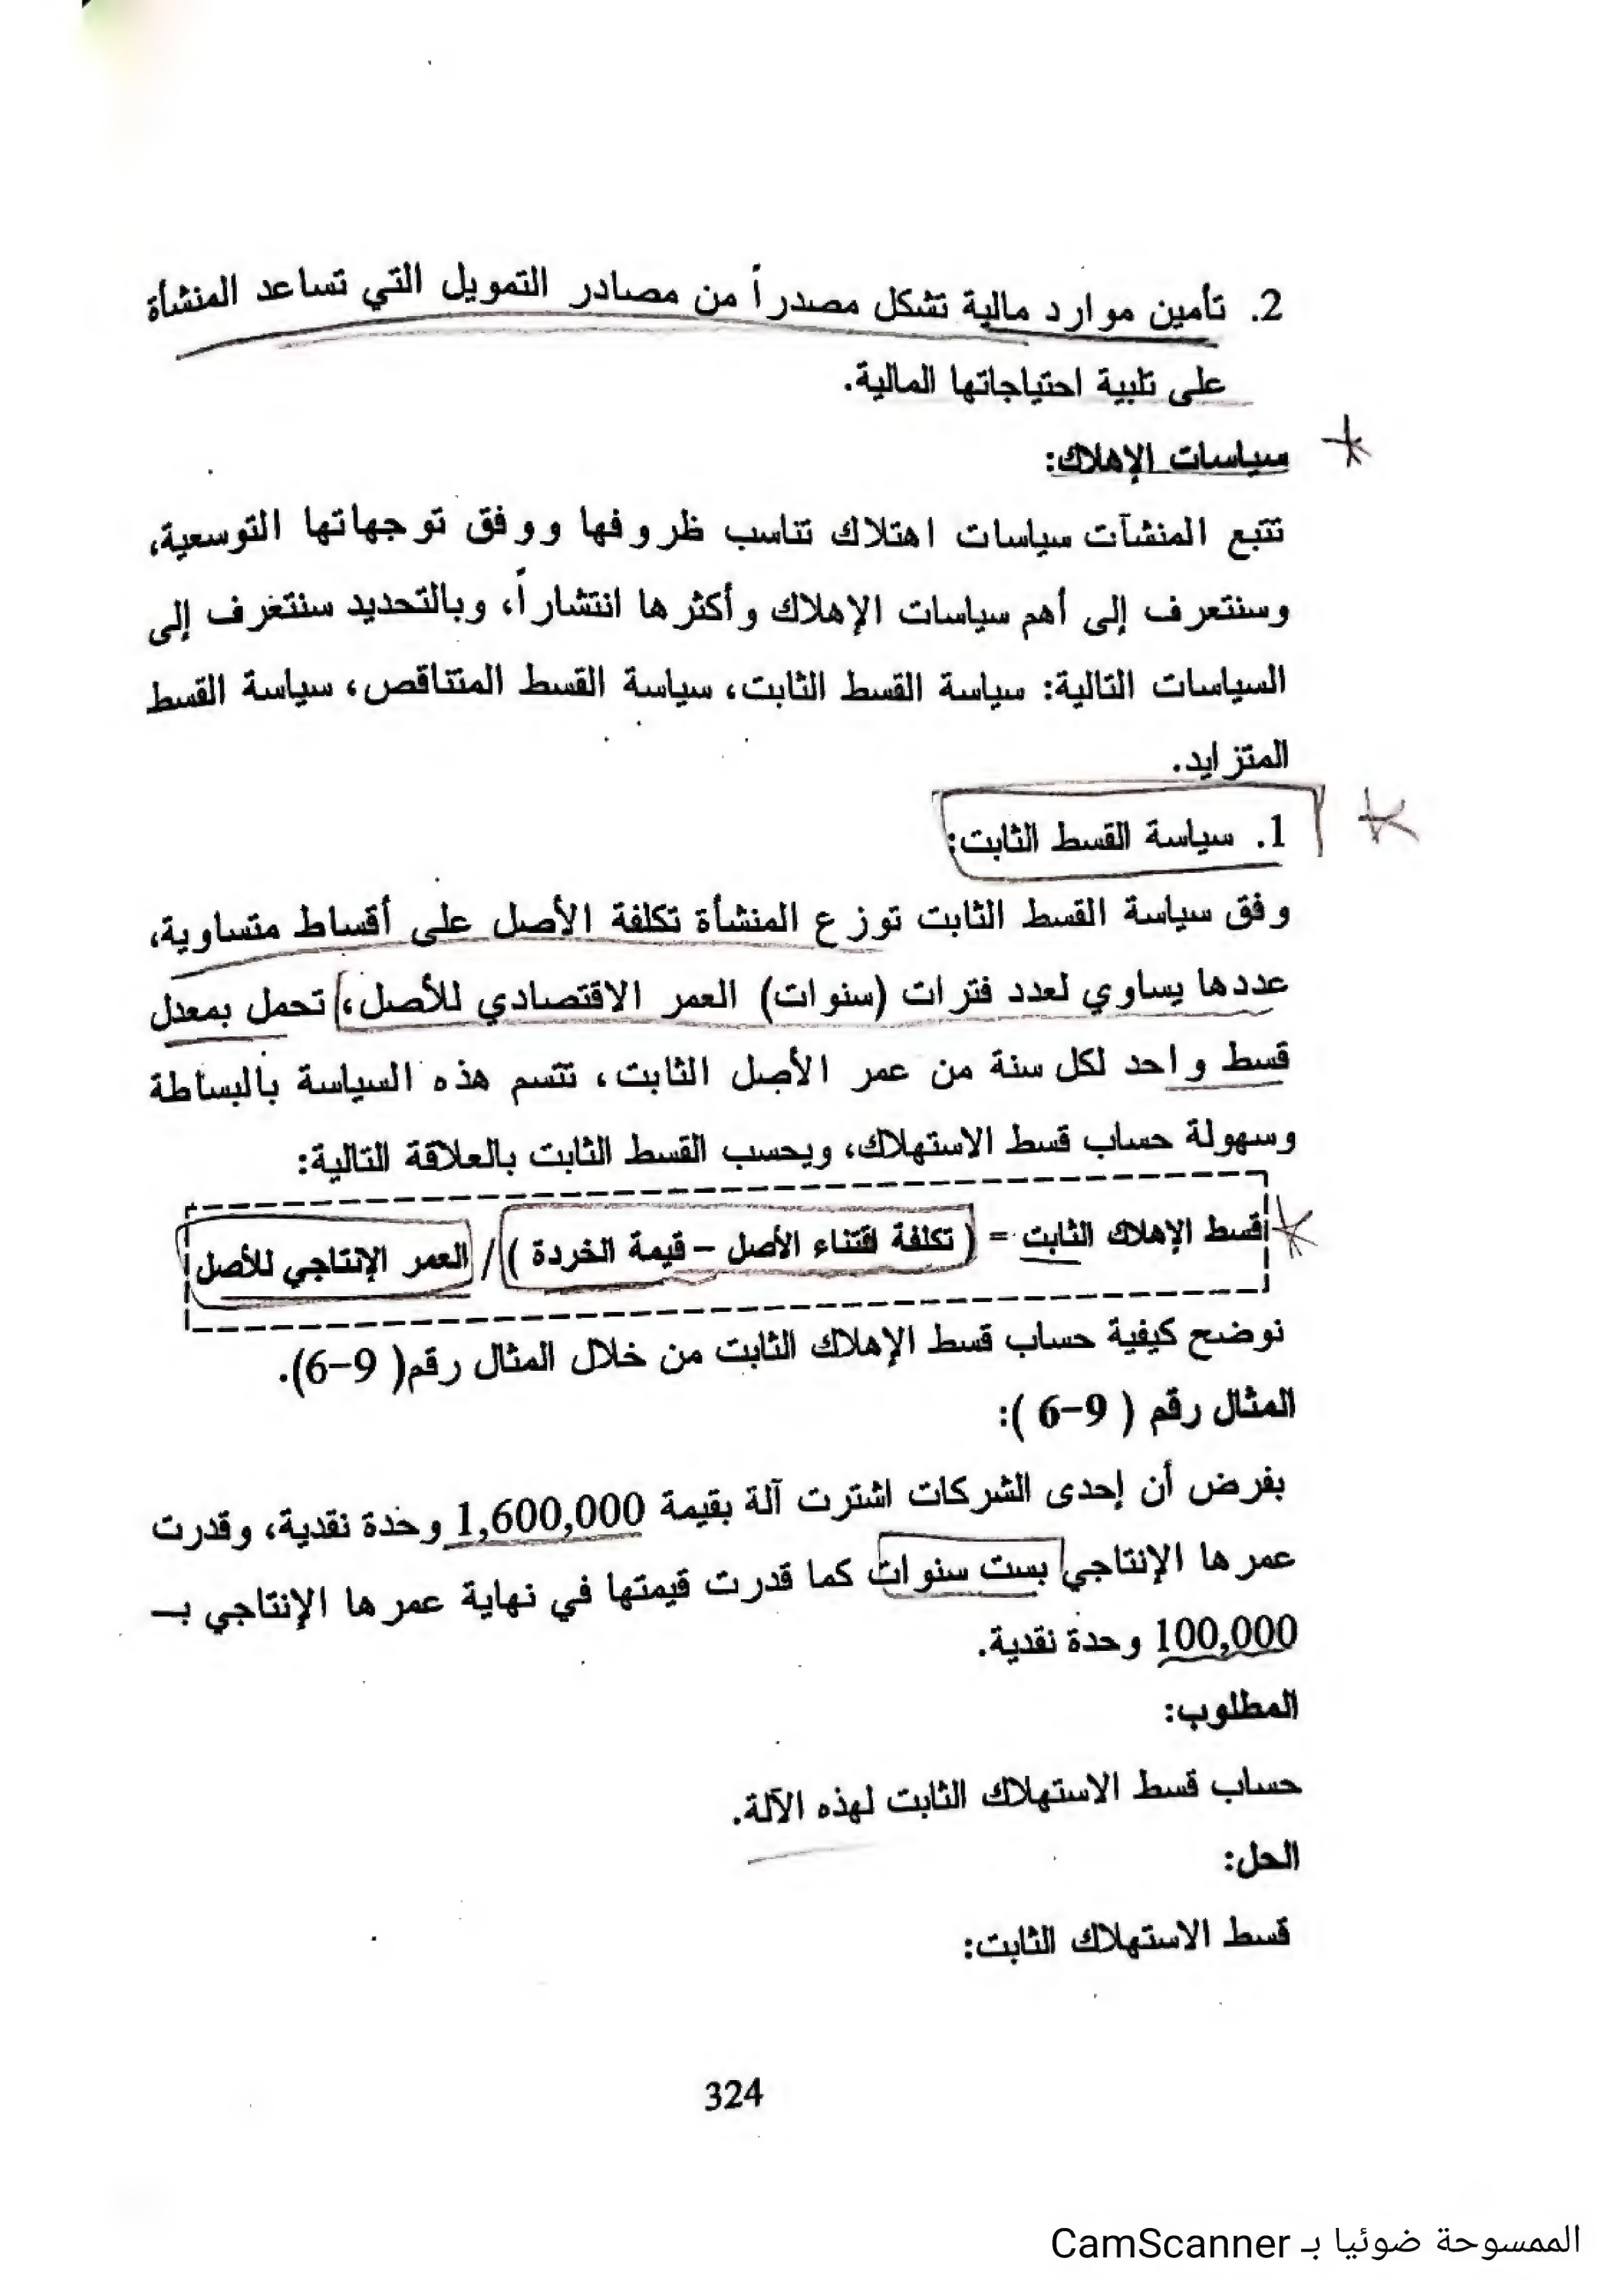 2. تأمين موارد مالية تشكل مصدراً من مصادر التمويل التي تساعد المنشأة
على تلبية احتياجاتها المالية.
سياسات الإهلاك:
تتبع المنشآت سياسات اهتلاك تناسب ظروفها ووفق توجهاتها التوسعية،
وسنتعرف إلى أهم سياسات الإهلاك وأكثرها انتشاراً، وبالتحديد سنتعرف إلى
السياسات التالية: سياسة القسط الثابت، سياسة القسط المتناقص، سياسة القسط
المتزايد.
1. سياسة القسط الثابت:
وفق سياسة القسط الثابت توزع المنشأة تكلفة الأصل على أقساط متساوية،
عددها يساوي لعدد فترات (سنوات) العمر الاقتصادي للأصل، تحمل بمعدل
قسط واحد لكل سنة من عمر الأصل الثابت، تتسم هذه السياسة بالبساطة
وسهولة حساب قسط الاستهلاك، ويحسب القسط الثابت بالعلاقة التالية:
قسط الإهلاك الثابت = ( تكلفة اقتناء الأصل – قيمة الخردة ) / العمر الإنتاجي للأصل
نوضح كيفية حساب قسط الإهلاك الثابت من خلال المثال رقم( 9-6).
المثال رقم ( 9-6 ):
بفرض أن إحدى الشركات اشترت آلة بقيمة 1,600,000 وحدة نقدية، وقدرت
عمرها الإنتاجي بست سنوات كما قدرت قيمتها في نهاية عمرها الإنتاجي بـ
100,000 وحدة نقدية.
المطلوب:
حساب قسط الاستهلاك الثابت لهذه الآلة.
الحل:
قسط الاستهلاك الثابت:
324
الممسوحة ضوئيا بـ CamScanner